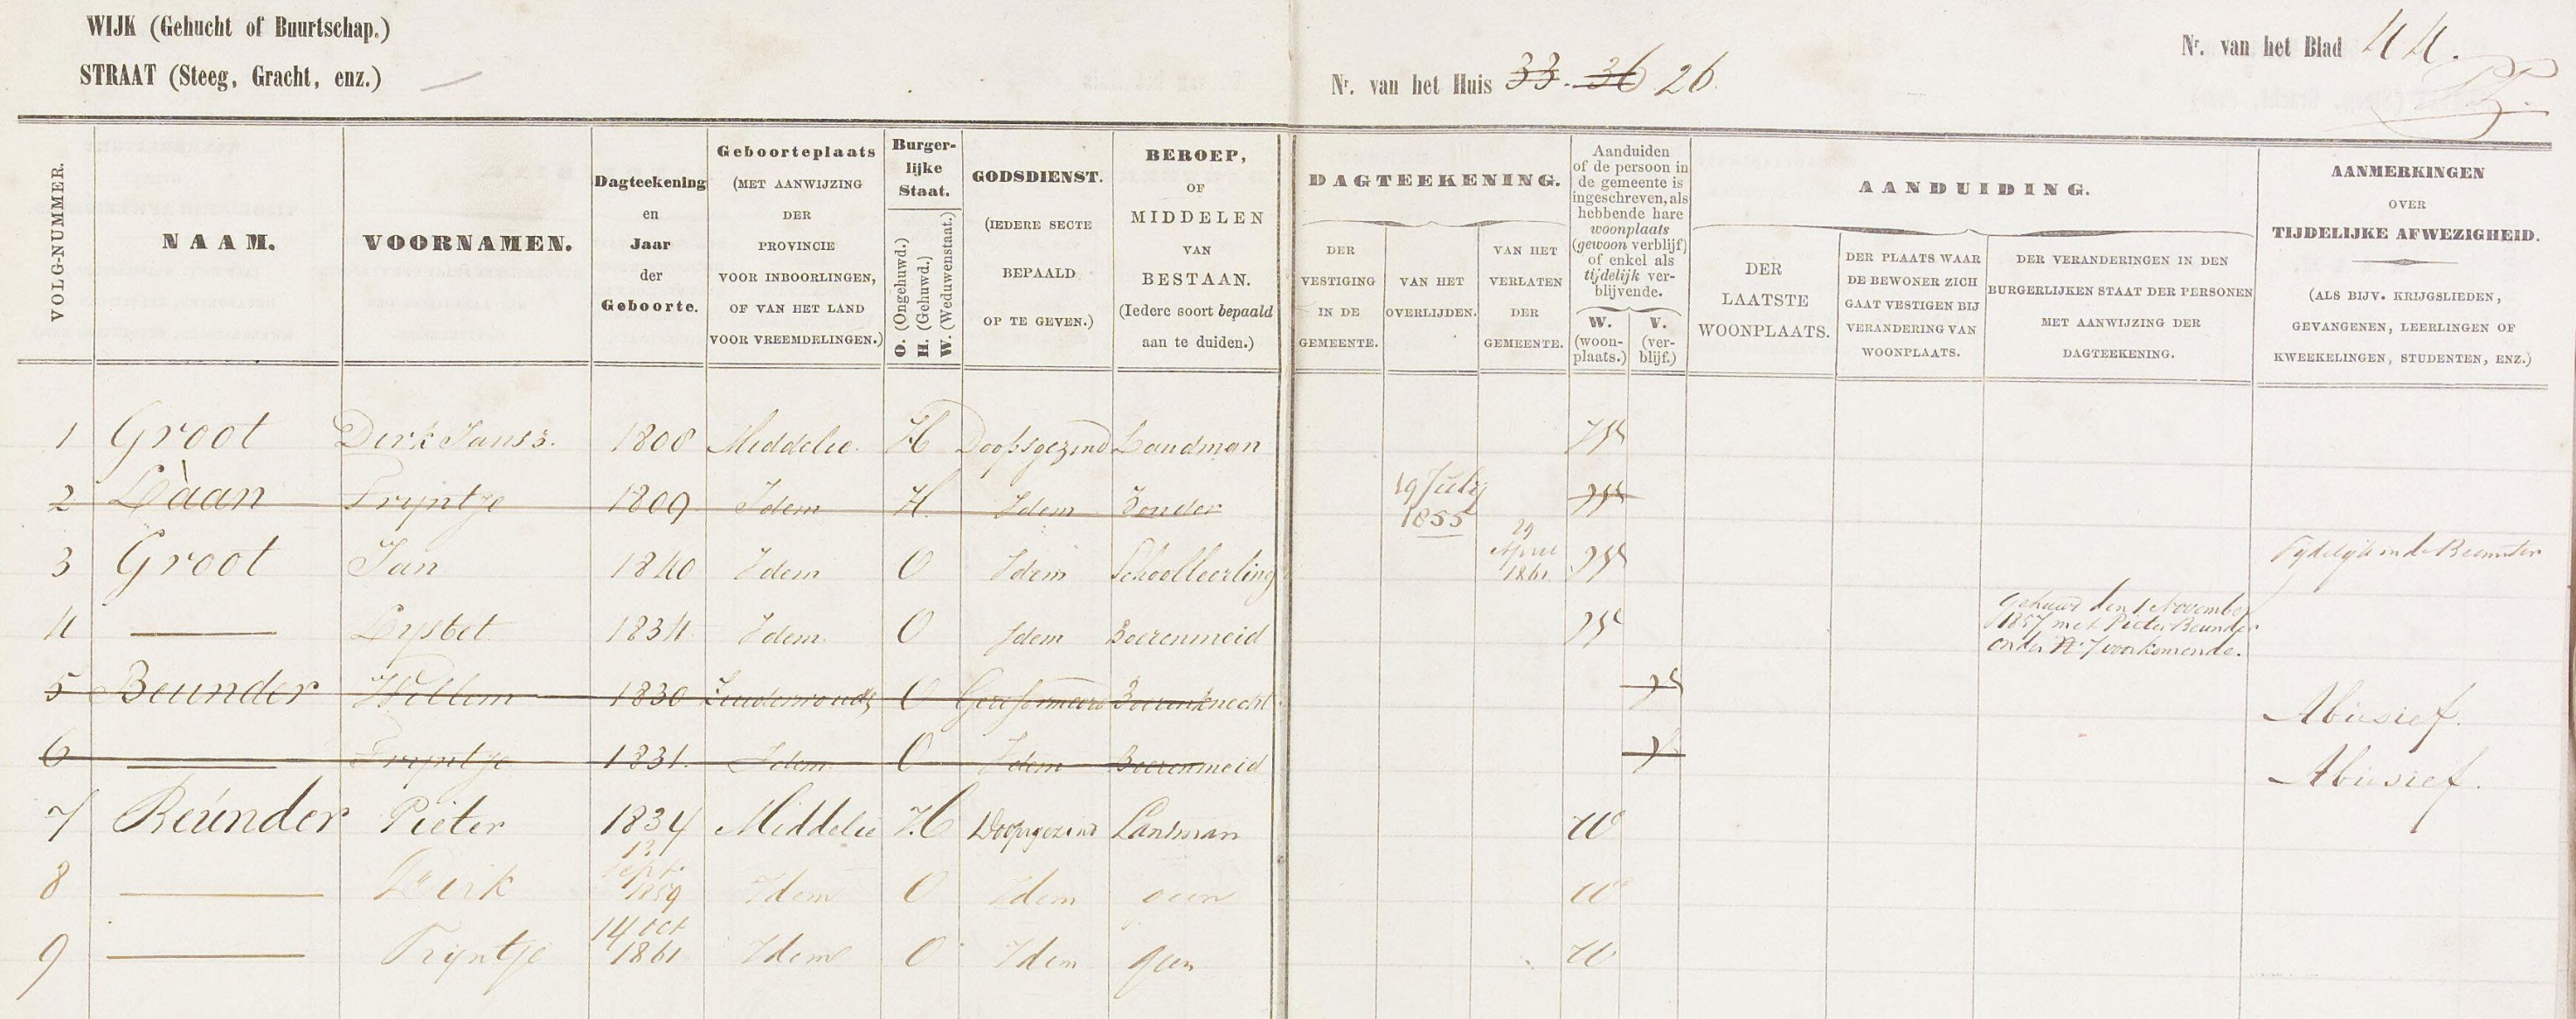 WIJK (Gehucht of Buurtschap.)
STRAAT (Steeg, Gracht, enz.)
Nr. van het Huis 33. 36 26
Nr. van het Blad 44.
VOLG-NUMMER.
NAAM.
VOORNAMEN.
Dagteekening
en
Jaar
der
Geboorte.
Geboorteplaats
(MET AANWIJZING
DER
PROVINCIE
VOOR INBOORLINGEN,
OF VAN HET LAND
VOOR VREEMDELINGEN.)
Burger-
lijke
Staat.
O. (Ongehuwd.)
H. (Gehuwd.)
W. (Weduwenstaat.)
GODSDIENST.
(IEDERE SECTE
BEPAALD
OP TE GEVEN.)
BEROEP,
OF
MIDDELEN
VAN
BESTAAN.
(Iedere soort bepaald
aan te duiden.)
DAGTEEKENING.
DER
VESTIGING
IN DE
GEMEENTE.
VAN HET
OVERLIJDEN.
VAN HET
VERLATEN
DER
GEMEENTE.
Aanduiden
of de persoon in
de gemeente is
ingeschreven, als
hebbende hare
woonplaats
(gewoon verblijf)
of enkel als
tijdelijk ver-
blijvende.
W.
(woon-
plaats.)
V.
(ver-
blijf.)
AANDUIDING.
DER
LAATSTE
WOONPLAATS.
DER PLAATS WAAR
DE BEWONER ZICH
GAAT VESTIGEN BIJ
VERANDERING VAN
WOONPLAATS.
DER VERANDERINGEN IN DEN
BURGERLIJKEN STAAT DER PERSONEN
MET AANWIJZING DER
DAGTEEKENING.
AANMERKINGEN
OVER
TIJDELIJKE AFWEZIGHEID.
(ALS BIJV. KRIJGSLIEDEN,
GEVANGENEN, LEERLINGEN OF
KWEEKELINGEN, STUDENTEN, ENZ.)
1 Groot Dirk Jansz. 1808 Middelie. H Doopsgezind Landman
2 Laan Trijntje 1809 Idem H. Idem Zonder 19 Julij 1855
3 Groot Jan 1840 Idem O Idem Schoolleerling 29 April 1861 Tydelyk in de Beemster
4 Lysbet 1834 Idem O Idem Boerenmeid Gehuwd den 1 November
1857 met Pieter Beunder
onder No 7 voorkomende.
5 Beunder Willem 1830 O Gereformeerd Boerenknecht Abusief.
6 Trijntje 1831. Idem O Idem Boerenmeid Abusief.
7 Beunder Pieter 1834 Middelie H Doopsgezind Landman W
8 Dirk 13 Sept. 1859 Idem O Idem geen W
9 Trijntje 14 Oct 1861 Idem O Idem geen W